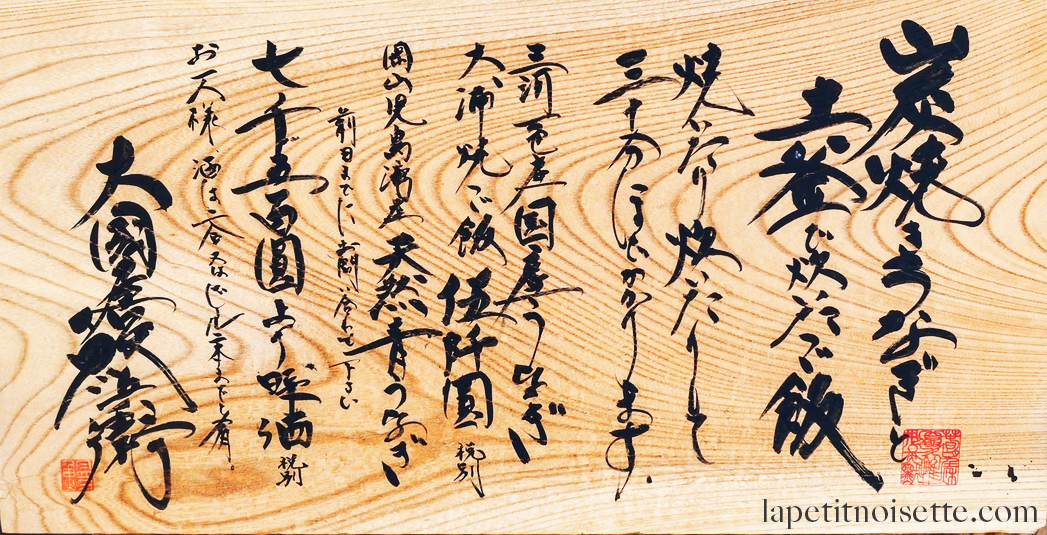 炭焼きうなぎと
土釜で炊いたご飯
焼いたり炊いたりして
三十分ほどかかります。
三河一色産国産うなぎ
大蒲焼ご飯 伍阡圓 税別
岡山児島湾産 天然青うなぎ
前日までに、お問い合わせ下さい
七千五百圓より 時価 税別
お一人様 酒は二合 又はビール二本まで
大國屋鰻兵衛
lapetitnoisette.com